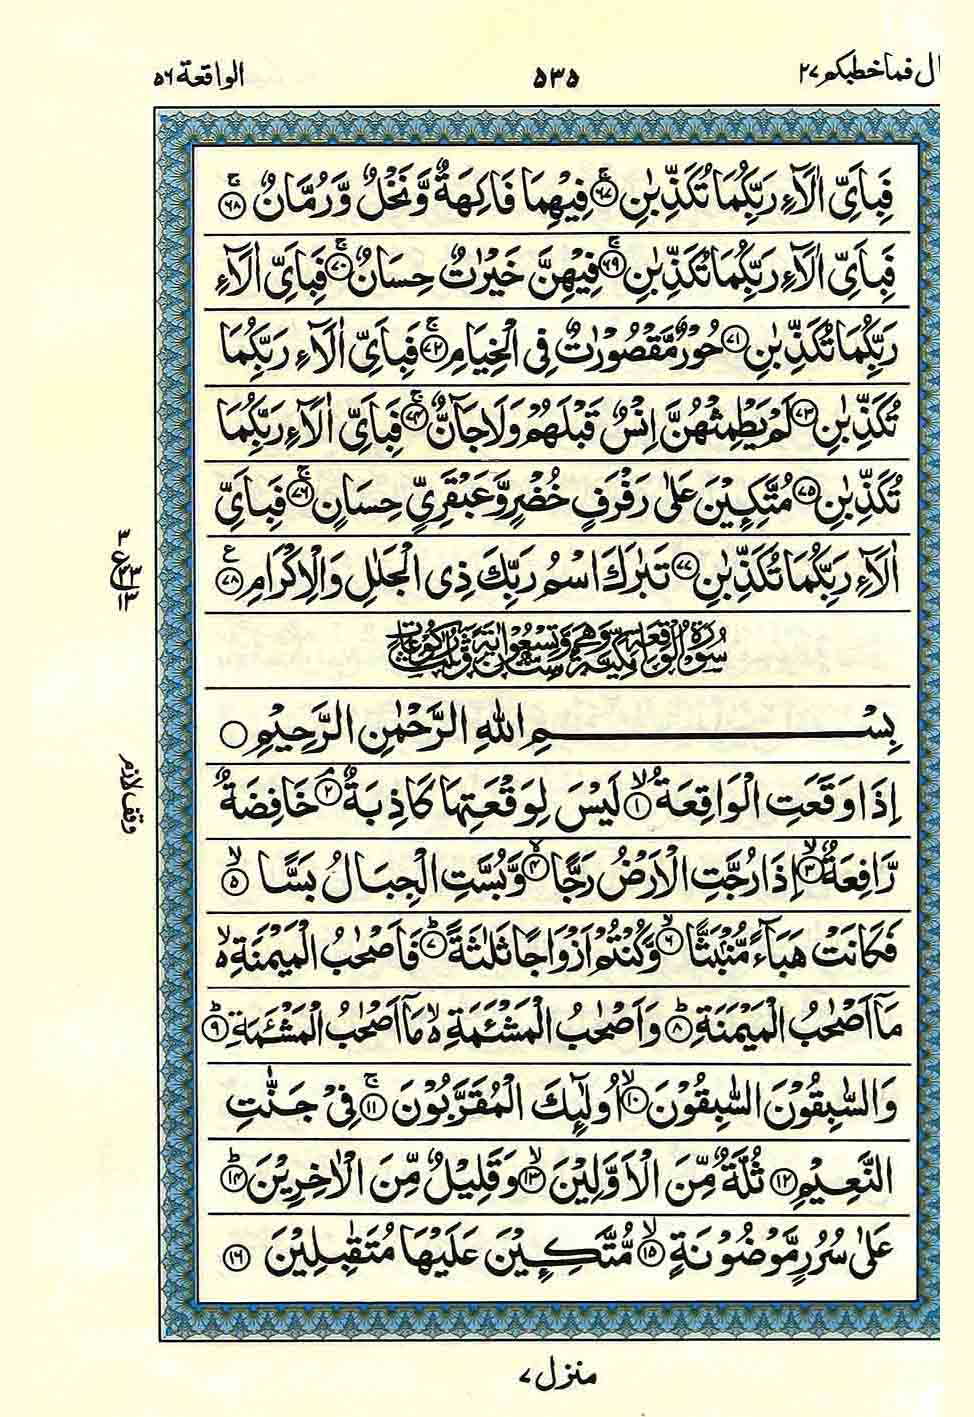 ال فماخطبكم ٢٧
٥٣٥
الواقعة ٥٦
فَبِاَيِّ اٰلَآءِ رَبِّكُمَا تُكَذِّبٰنِ ﴿٦٧﴾ۚ فِيْهِمَا فَاكِهَةٌ وَّنَخْلٌ وَّرُمَّانٌ ﴿٦٨﴾ۚ
فَبِاَيِّ اٰلَآءِ رَبِّكُمَا تُكَذِّبٰنِ ﴿٦٩﴾ۚ فِيْهِنَّ خَيْرٰتٌ حِسَانٌ ﴿٧٠﴾ۚ فَبِاَيِّ اٰلَآءِ
رَبِّكُمَا تُكَذِّبٰنِ ﴿٧١﴾ حُوْرٌ مَّقْصُوْرٰتٌ فِى الْخِيَامِ ﴿٧٢﴾ۚ فَبِاَيِّ اٰلَآءِ رَبِّكُمَا
تُكَذِّبٰنِ ﴿٧٣﴾ لَمْ يَطْمِثْهُنَّ اِنْسٌ قَبْلَهُمْ وَلَا جَآنٌّ ﴿٧٤﴾ۚ فَبِاَيِّ اٰلَآءِ رَبِّكُمَا
تُكَذِّبٰنِ ﴿٧٥﴾ مُتَّكِـِٕيْنَ عَلٰى رَفْرَفٍ خُضْرٍ وَّعَبْقَرِيٍّ حِسَانٍ ﴿٧٦﴾ۚ فَبِاَيِّ
اٰلَآءِ رَبِّكُمَا تُكَذِّبٰنِ ﴿٧٧﴾ تَبٰرَكَ اسْمُ رَبِّكَ ذِى الْجَلٰلِ وَالْاِكْرَامِ ﴿٧٨﴾ ع
٣
ع ٣٣
١٣
بِسْمِ اللهِ الرَّحْمٰنِ الرَّحِيْمِ
اِذَا وَقَعَتِ الْوَاقِعَةُ ﴿١﴾ۙ لَيْسَ لِوَقْعَتِهَا كَاذِبَةٌ ﴿٢﴾ۘ خَافِضَةٌ
وقف لازم
رَّافِعَةٌ ﴿٣﴾ۙ اِذَا رُجَّتِ الْاَرْضُ رَجًّا ﴿٤﴾ۙ وَّبُسَّتِ الْجِبَالُ بَسًّا ﴿٥﴾ۙ
فَكَانَتْ هَبَآءً مُّنْۢبَثًّا ﴿٦﴾ۙ وَّكُنْتُمْ اَزْوَاجًا ثَلٰثَةً ﴿٧﴾ؕ فَاَصْحٰبُ الْمَيْمَنَةِ ۙ
مَآ اَصْحٰبُ الْمَيْمَنَةِ ﴿٨﴾ؕ وَاَصْحٰبُ الْمَشْـَٔمَةِ ۙ مَآ اَصْحٰبُ الْمَشْـَٔمَةِ ﴿٩﴾ؕ
وَالسّٰبِقُوْنَ السّٰبِقُوْنَ ﴿١٠﴾ۙ اُولٰٓىِٕكَ الْمُقَرَّبُوْنَ ﴿١١﴾ۚ فِيْ جَنّٰتِ
النَّعِيْمِ ﴿١٢﴾ ثُلَّةٌ مِّنَ الْاَوَّلِيْنَ ﴿١٣﴾ۙ وَقَلِيْلٌ مِّنَ الْاٰخِرِيْنَ ﴿١٤﴾ؕ
عَلٰى سُرُرٍ مَّوْضُوْنَةٍ ﴿١٥﴾ۙ مُّتَّكِـِٕيْنَ عَلَيْهَا مُتَقٰبِلِيْنَ ﴿١٦﴾
منزل ٧